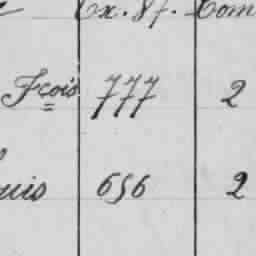 Ex. Sf. Com
Fcois 777 2
uis 656 2